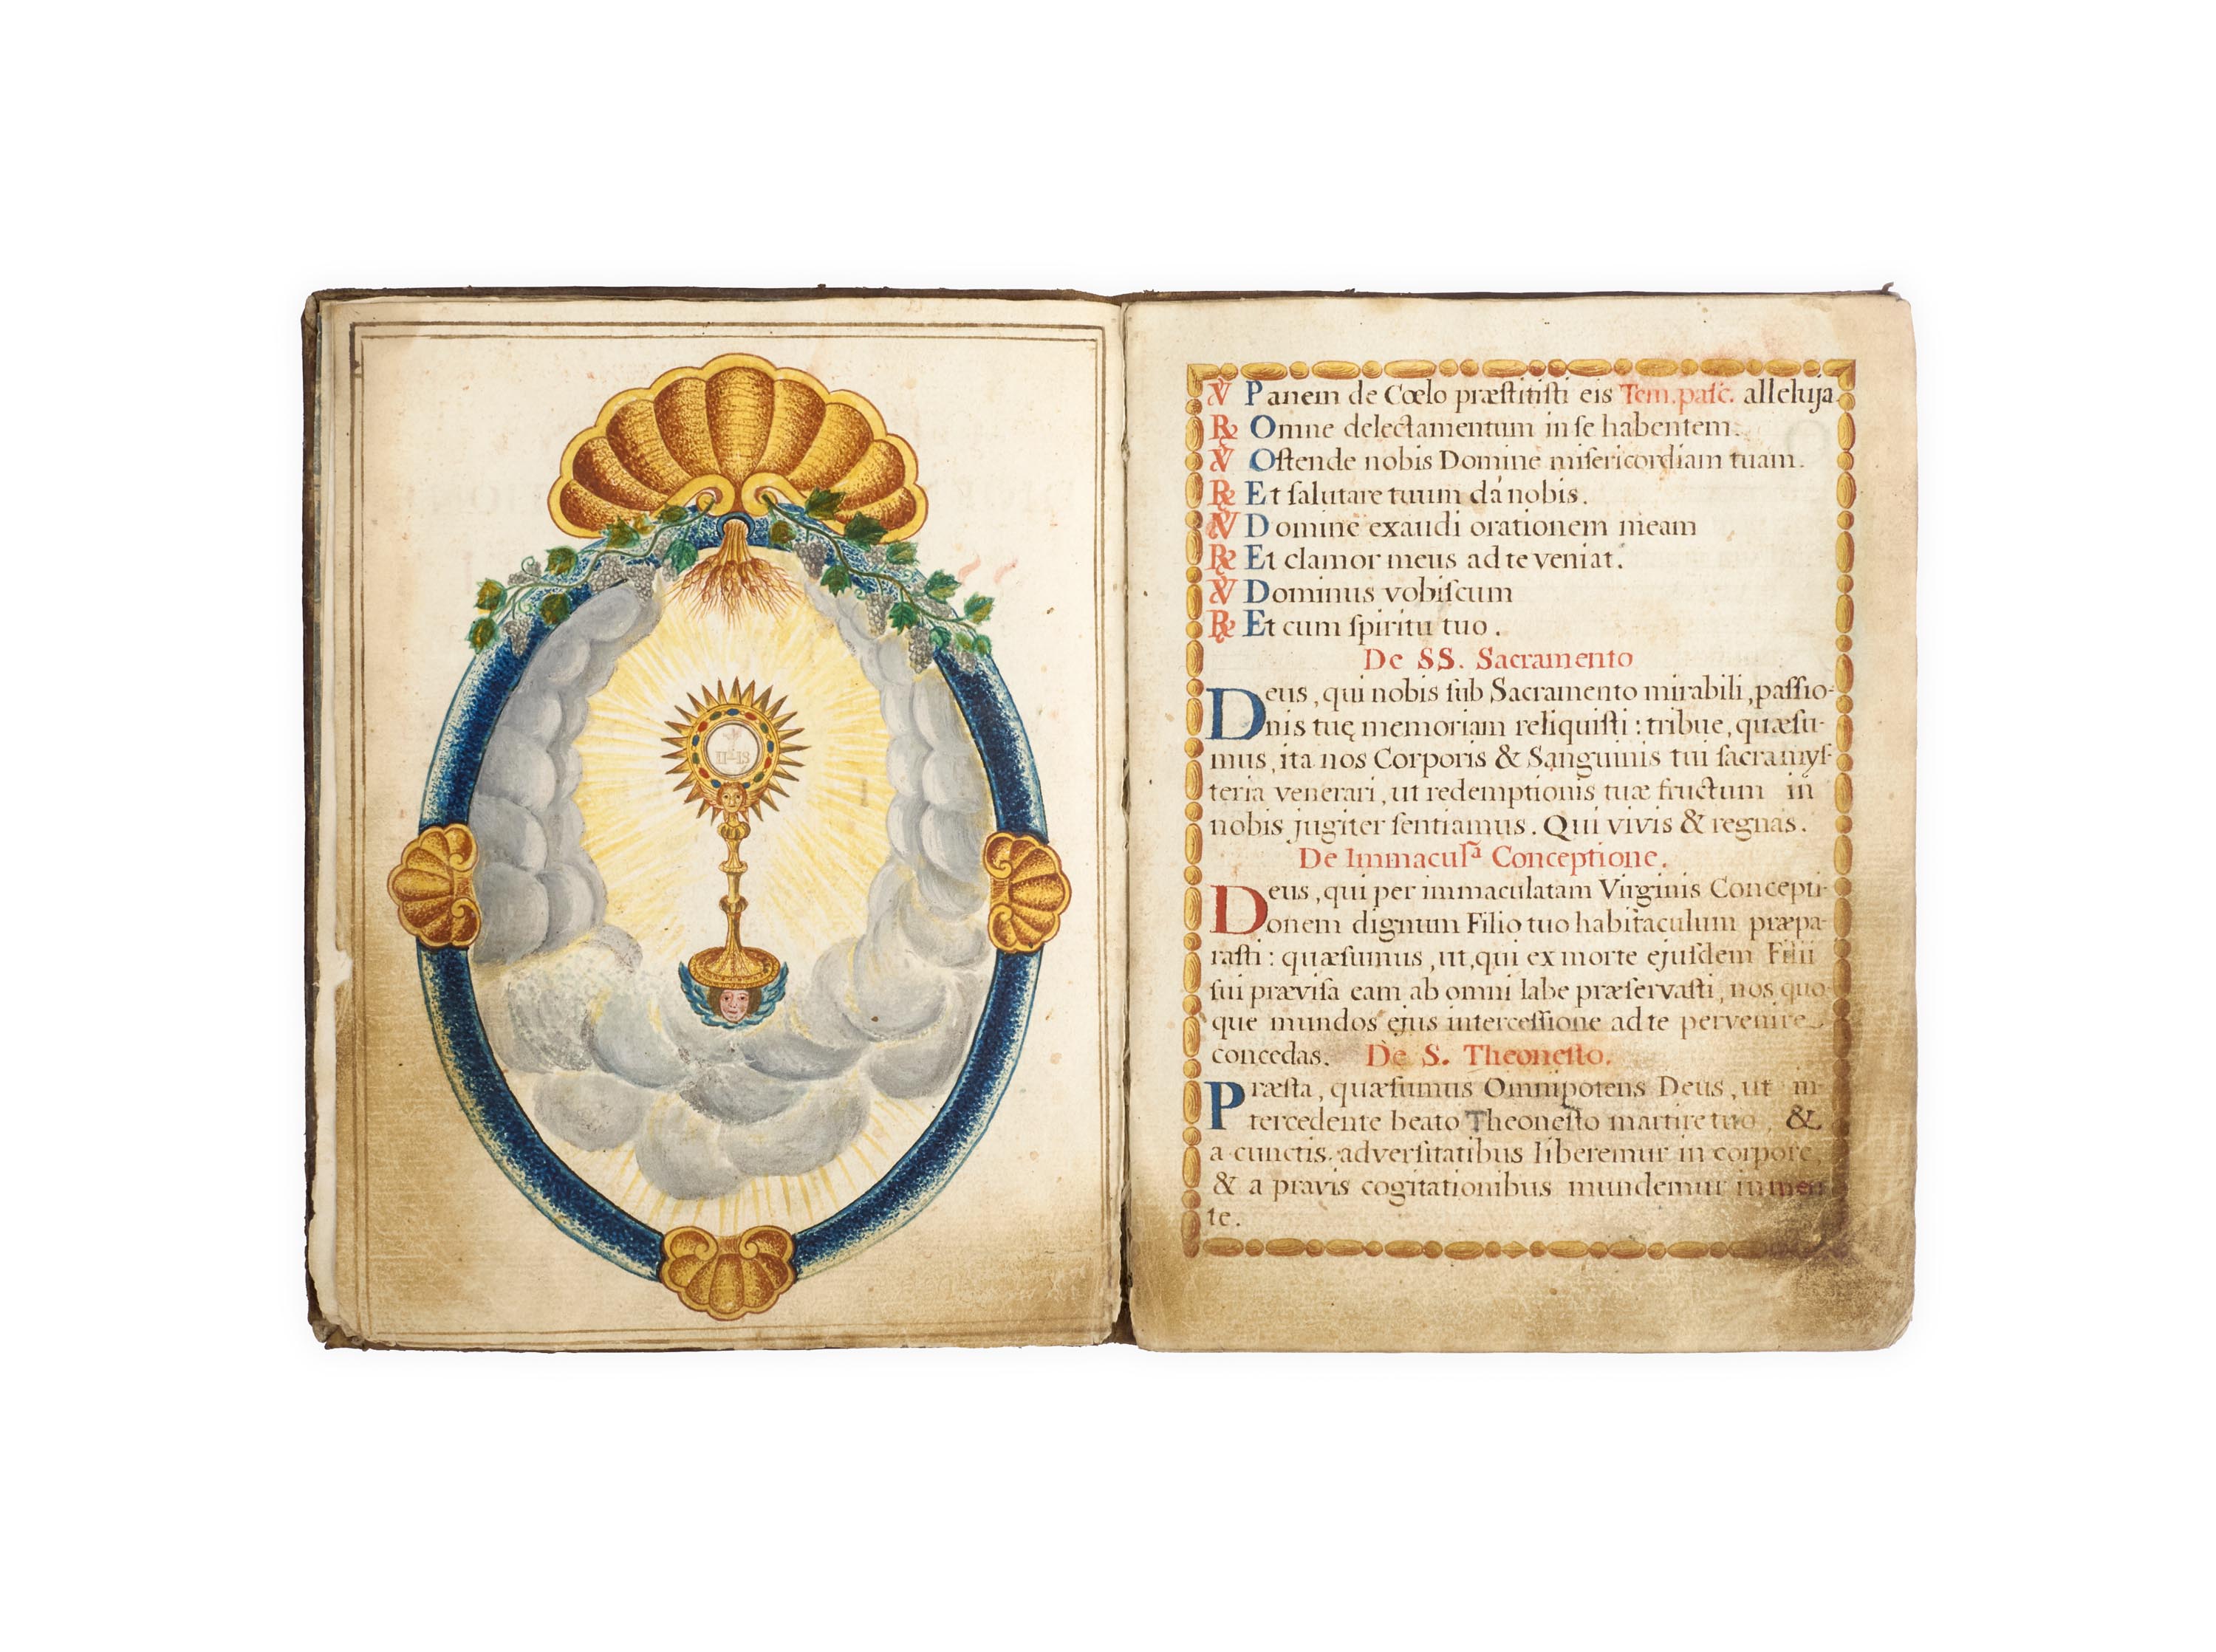 ℣ Panem de Cœlo præſtitiſti eis Tem. paſc. alleluja
℟ Omne delectamentum in ſe habentem.
℣ Oſtende nobis Domine miſericordiam tuam.
℟ Et ſalutare tuum da nobis.
℣ Domine exaudi orationem meam
℟ Et clamor meus ad te veniat.
℣ Dominus vobiſcum
℟ Et cum ſpiritu tuo.
De SS. Sacramento
Deus, qui nobis ſub Sacramento mirabili, paſſio-
nis tuę memoriam reliquiſti: tribue, quæſu-
mus, ita nos Corporis & Sanguinis tui ſacra myſ-
teria venerari, ut redemptionis tuæ fructum in
nobis jugiter ſentiamus. Qui vivis & regnas.
De Immaculᵗᵃ Conceptione.
Deus, qui per immaculatam Virginis Concepti-
onem dignum Filio tuo habitaculum præpa-
raſti: quæſumus, ut, qui ex morte ejuſdem Filii
ſui præviſa eam ab omni labe præſervaſti, nos quo-
que mundos ejus interceſſione ad te pervenire
concedas. De S. Theoneſto.
Præſta, quæſumus Omnipotens Deus, ut in-
tercedente beato Theoneſto martire tuo, &
a cunctis adverſitatibus liberemur in corpore,
& a pravis cogitationibus mundemur in men
te.